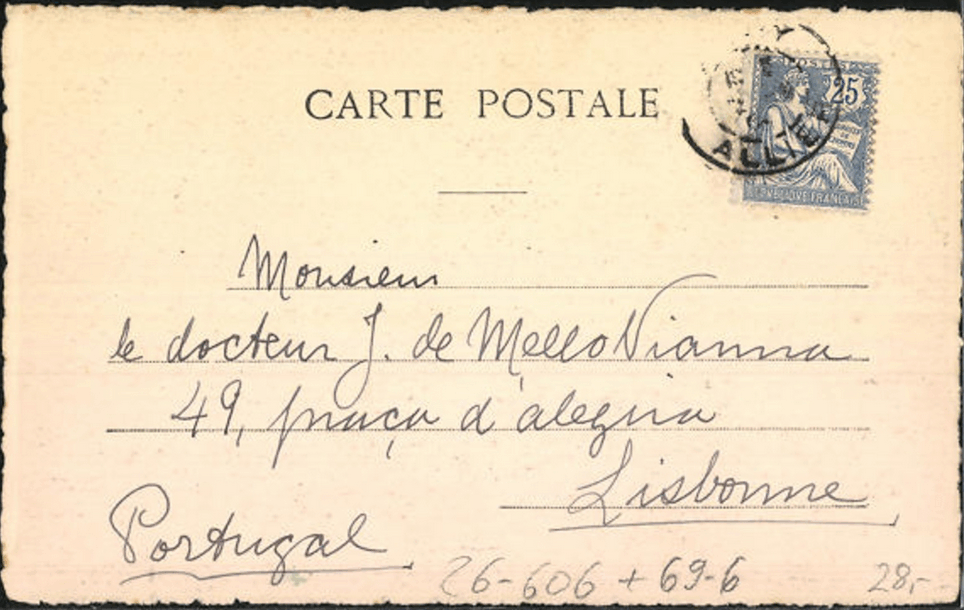 CARTE POSTALE
POSTES
25
ALLIER
REPUBLIQUE FRANÇAISE
Monsieur
le docteur J. de Mello Vianna
49, praça d'alegria
Lisbonne
Portugal
26-606 + 69-6
28,-